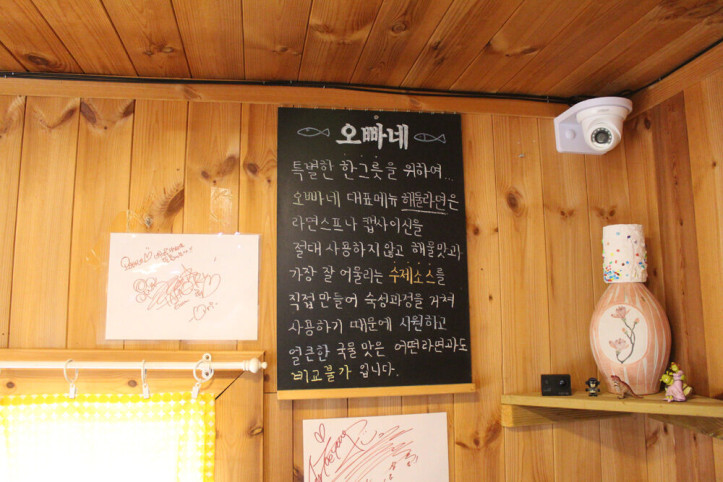 오빠네
특별한 한그릇을 위하여...
오빠네 대표메뉴 해물라면은
라면스프나 캡사이신을
절대 사용하지 않고 해물맛과
가장 잘 어울리는 수제소스를
직접 만들어 숙성과정을 거쳐
사용하기 때문에 시원하고
얼큰한 국물 맛은 어떤라면과도
비교불가 입니다.